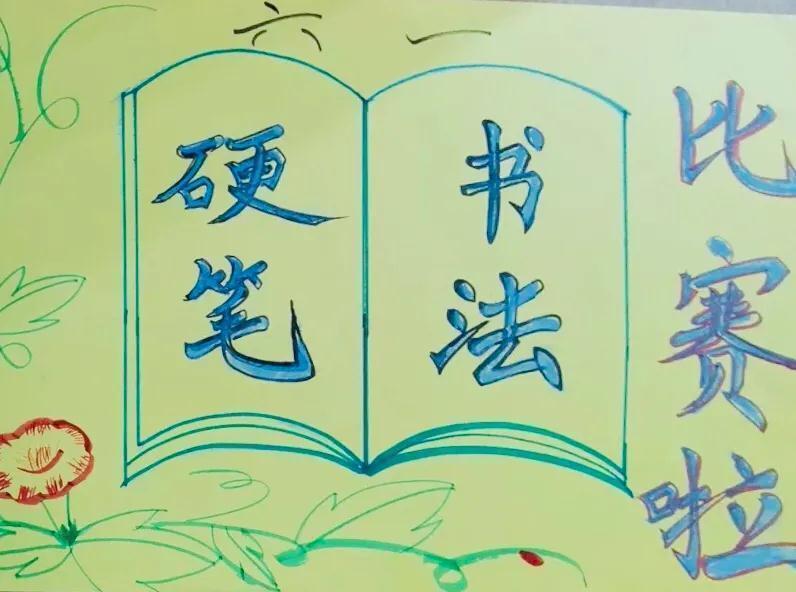 六一
硬笔
书法
比赛啦